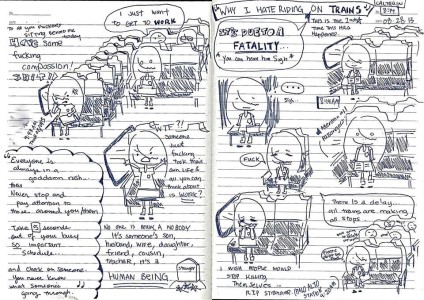 TO All you assholes
sitting behind me
Show some
fucking
compassion!
I Just want
to GET to WORK
WTF?!
someone
Just
fucking
Took their
own Life &
all you can
think about
is WORK?
"Everyone is
always in a
goddamn rush...
that
Never stop and
pay attention to
those around you/them
Take 5 seconds
out of your busy
so important
Schedule...
and check on someone.
You never know
what someone's
going through.
NO ONE IS REALLY A NOBODY
It's someone's son,
husband, wife, daughter,
friend, cousin,
teacher, it's a
HUMAN BEING
Stranger
WHY I HATE RIDING ON TRAINS
CALTRAIN
08·28·13
This is the 2nd
time this has
Happened
IT'S DUE TO A
FATALITY...
* You can hear him Sigh *
...
FUCK
There is a delay
all trains are making
all stops
I WISH PEOPLE WOULD
STOP Killing
Themselves
RIP STRANGER